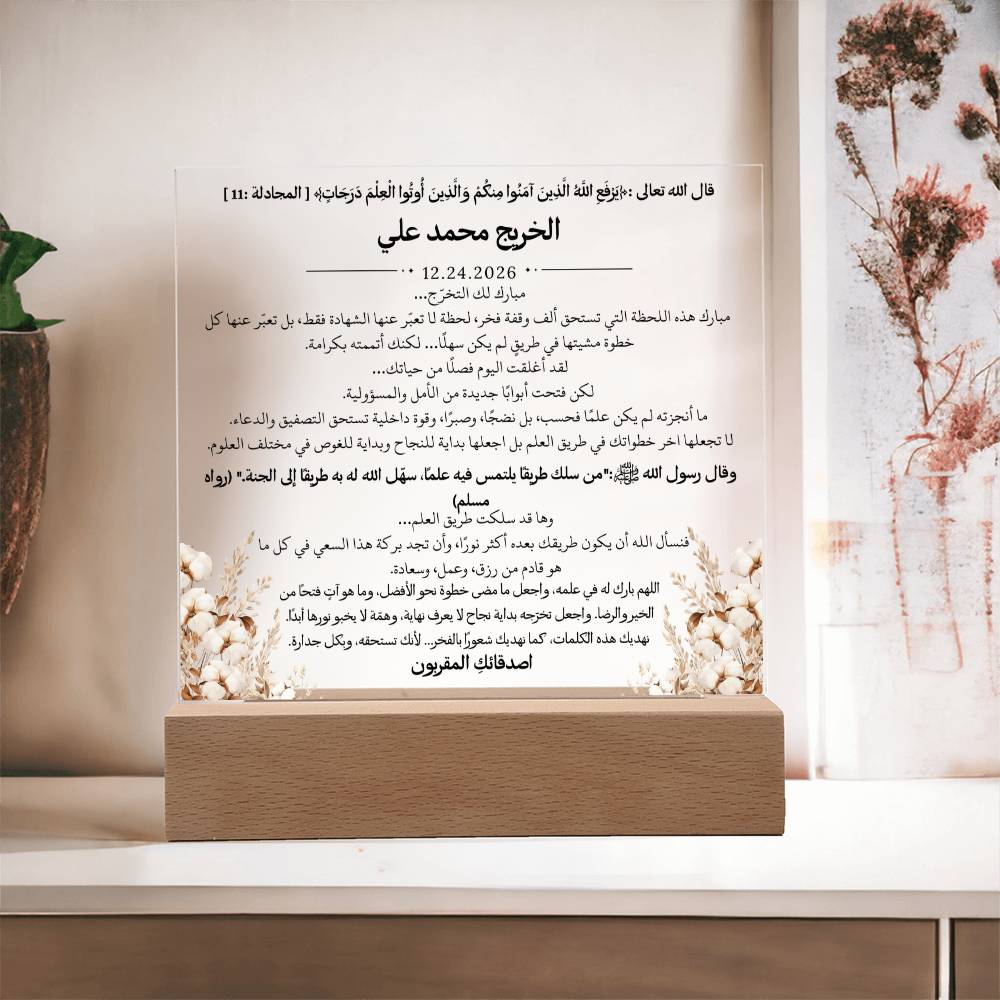 قال الله تعالى :﴿يَرْفَعِ اللَّهُ الَّذِينَ آمَنُوا مِنكُمْ وَالَّذِينَ أُوتُوا الْعِلْمَ دَرَجَاتٍ﴾ [ المجادلة :11 ]
الخريج محمد علي
12.24.2026
مبارك لك التخرّج...
مبارك هذه اللحظة التي تستحق ألف وقفة فخر، لحظة لا تعبّر عنها الشهادة فقط، بل تعبّر عنها كل
خطوة مشيتها في طريقٍ لم يكن سهلًا... لكنك أتممته بكرامة.
لقد أغلقت اليوم فصلًا من حياتك...
لكن فتحت أبوابًا جديدة من الأمل والمسؤولية.
ما أنجزته لم يكن علمًا فحسب، بل نضجًا، وصبرًا، وقوة داخلية تستحق التصفيق والدعاء.
لا تجعلها اخر خطواتك في طريق العلم بل اجعلها بداية للنجاح وبداية للغوص في مختلف العلوم.
وقال رسول الله ﷺ:"من سلك طريقًا يلتمس فيه علمًا، سهّل الله له به طريقًا إلى الجنة." (رواه
مسلم)
وها قد سلكت طريق العلم...
فنسأل الله أن يكون طريقك بعده أكثر نورًا، وأن تجد بركة هذا السعي في كل ما
هو قادم من رزق، وعمل، وسعادة.
اللهم بارك له في علمه، واجعل ما مضى خطوة نحو الأفضل، وما هو آتٍ فتحًا من
الخير والرضا. واجعل تخرّجه بداية نجاح لا يعرف نهاية، وهمّة لا يخبو نورها أبدًا.
نهديك هذه الكلمات، كما نهديك شعورًا بالفخر... لأنك تستحقه، وبكل جدارة.
اصدقائكِ المقربون